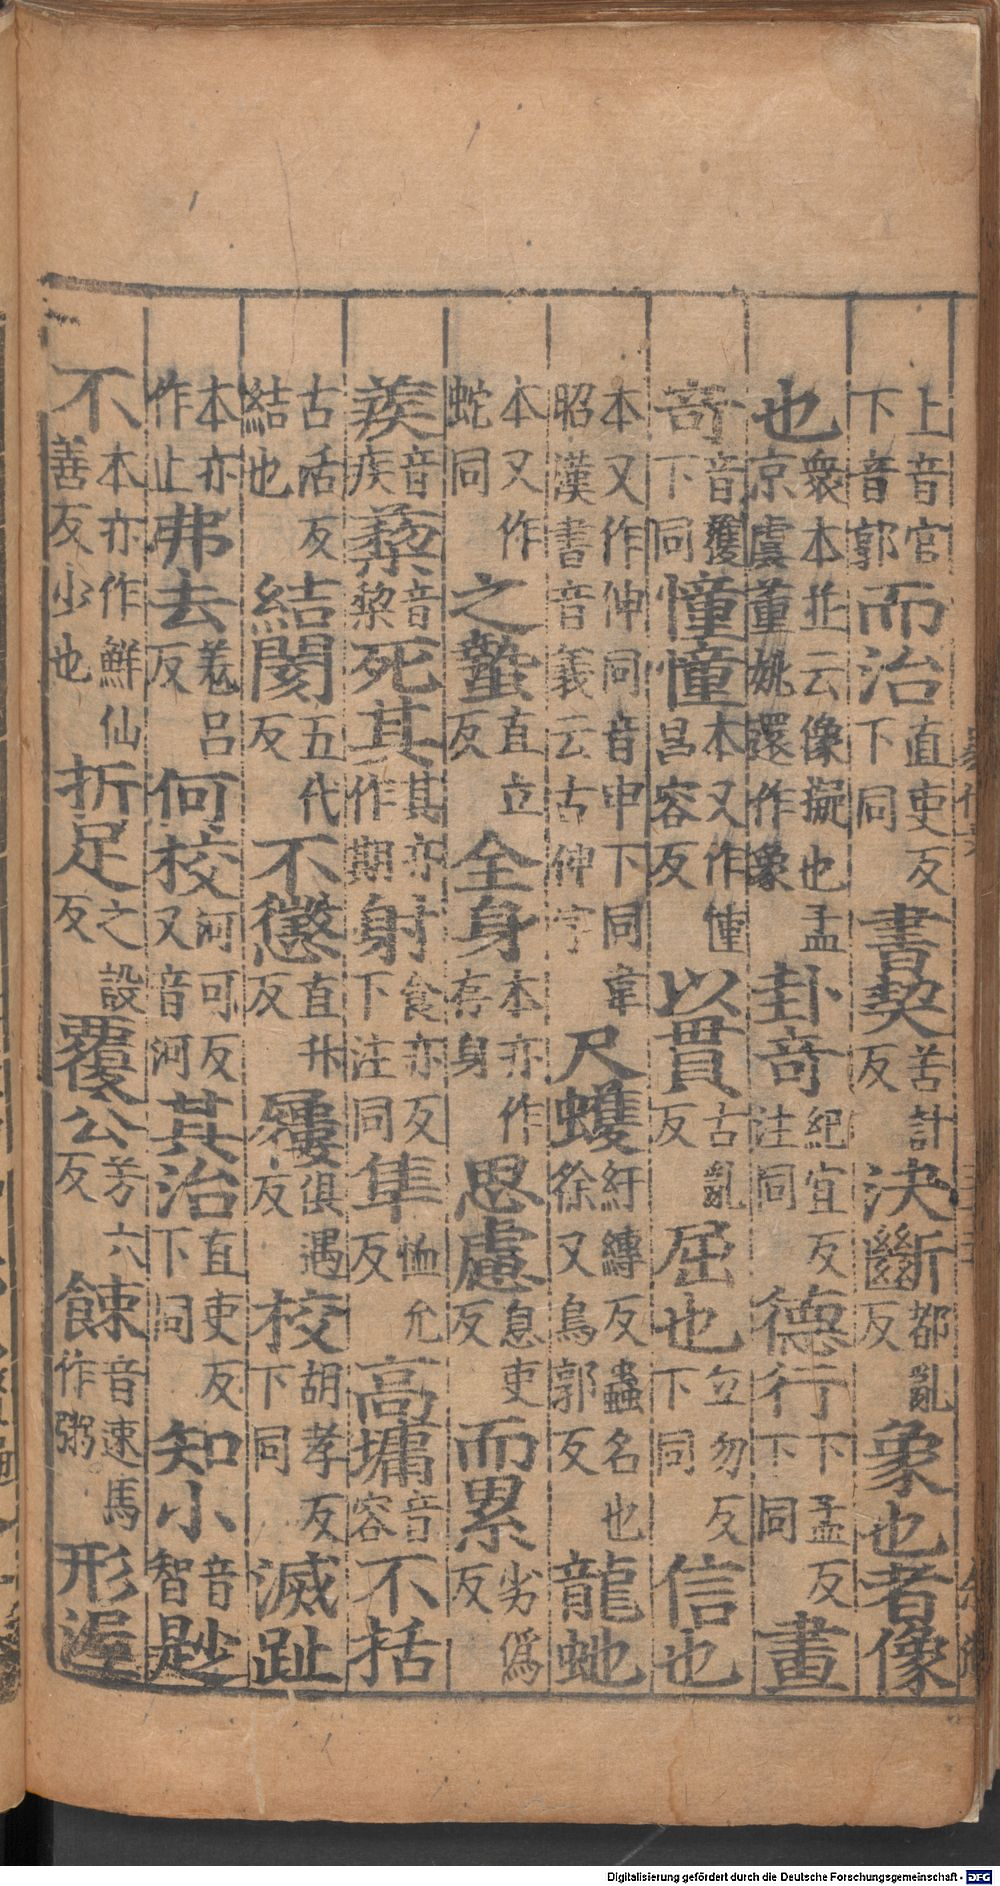 上音官下音郭而治直吏反下同書契苦計反決斷都亂反象也者像
也衆本並云像擬也孟京虞董姚還作象卦奇紀宜反注同德行下孟反下同畫
奇音獲下同憧憧本又作㣫昌容反以貫古亂反屈也丘勿反下同信也
本又作伸同音申下同韋昭漢書音義云古伸字尺蠖紆縛反蟲名也徐又烏郭反龍虵
本又作蛇同之蟄直立反全身本亦作存身思慮息吏反而累劣偽反
蒺音疾蔾音黎死其其亦作期射食亦反下注同隼恤允反高墉音容不括
古活反結也結閡五代反不懲直升反屨俱遇反校胡孝反下同滅趾
本亦作止弗去羌呂反何校河可反又音河其治直吏反下同知小音智尟
不本亦作鮮仙善反少也折足之設反覆公芳六反餗音速馬作粥形渥
Digitalisierung gefördert durch die Deutsche Forschungsgemeinschaft - DFG